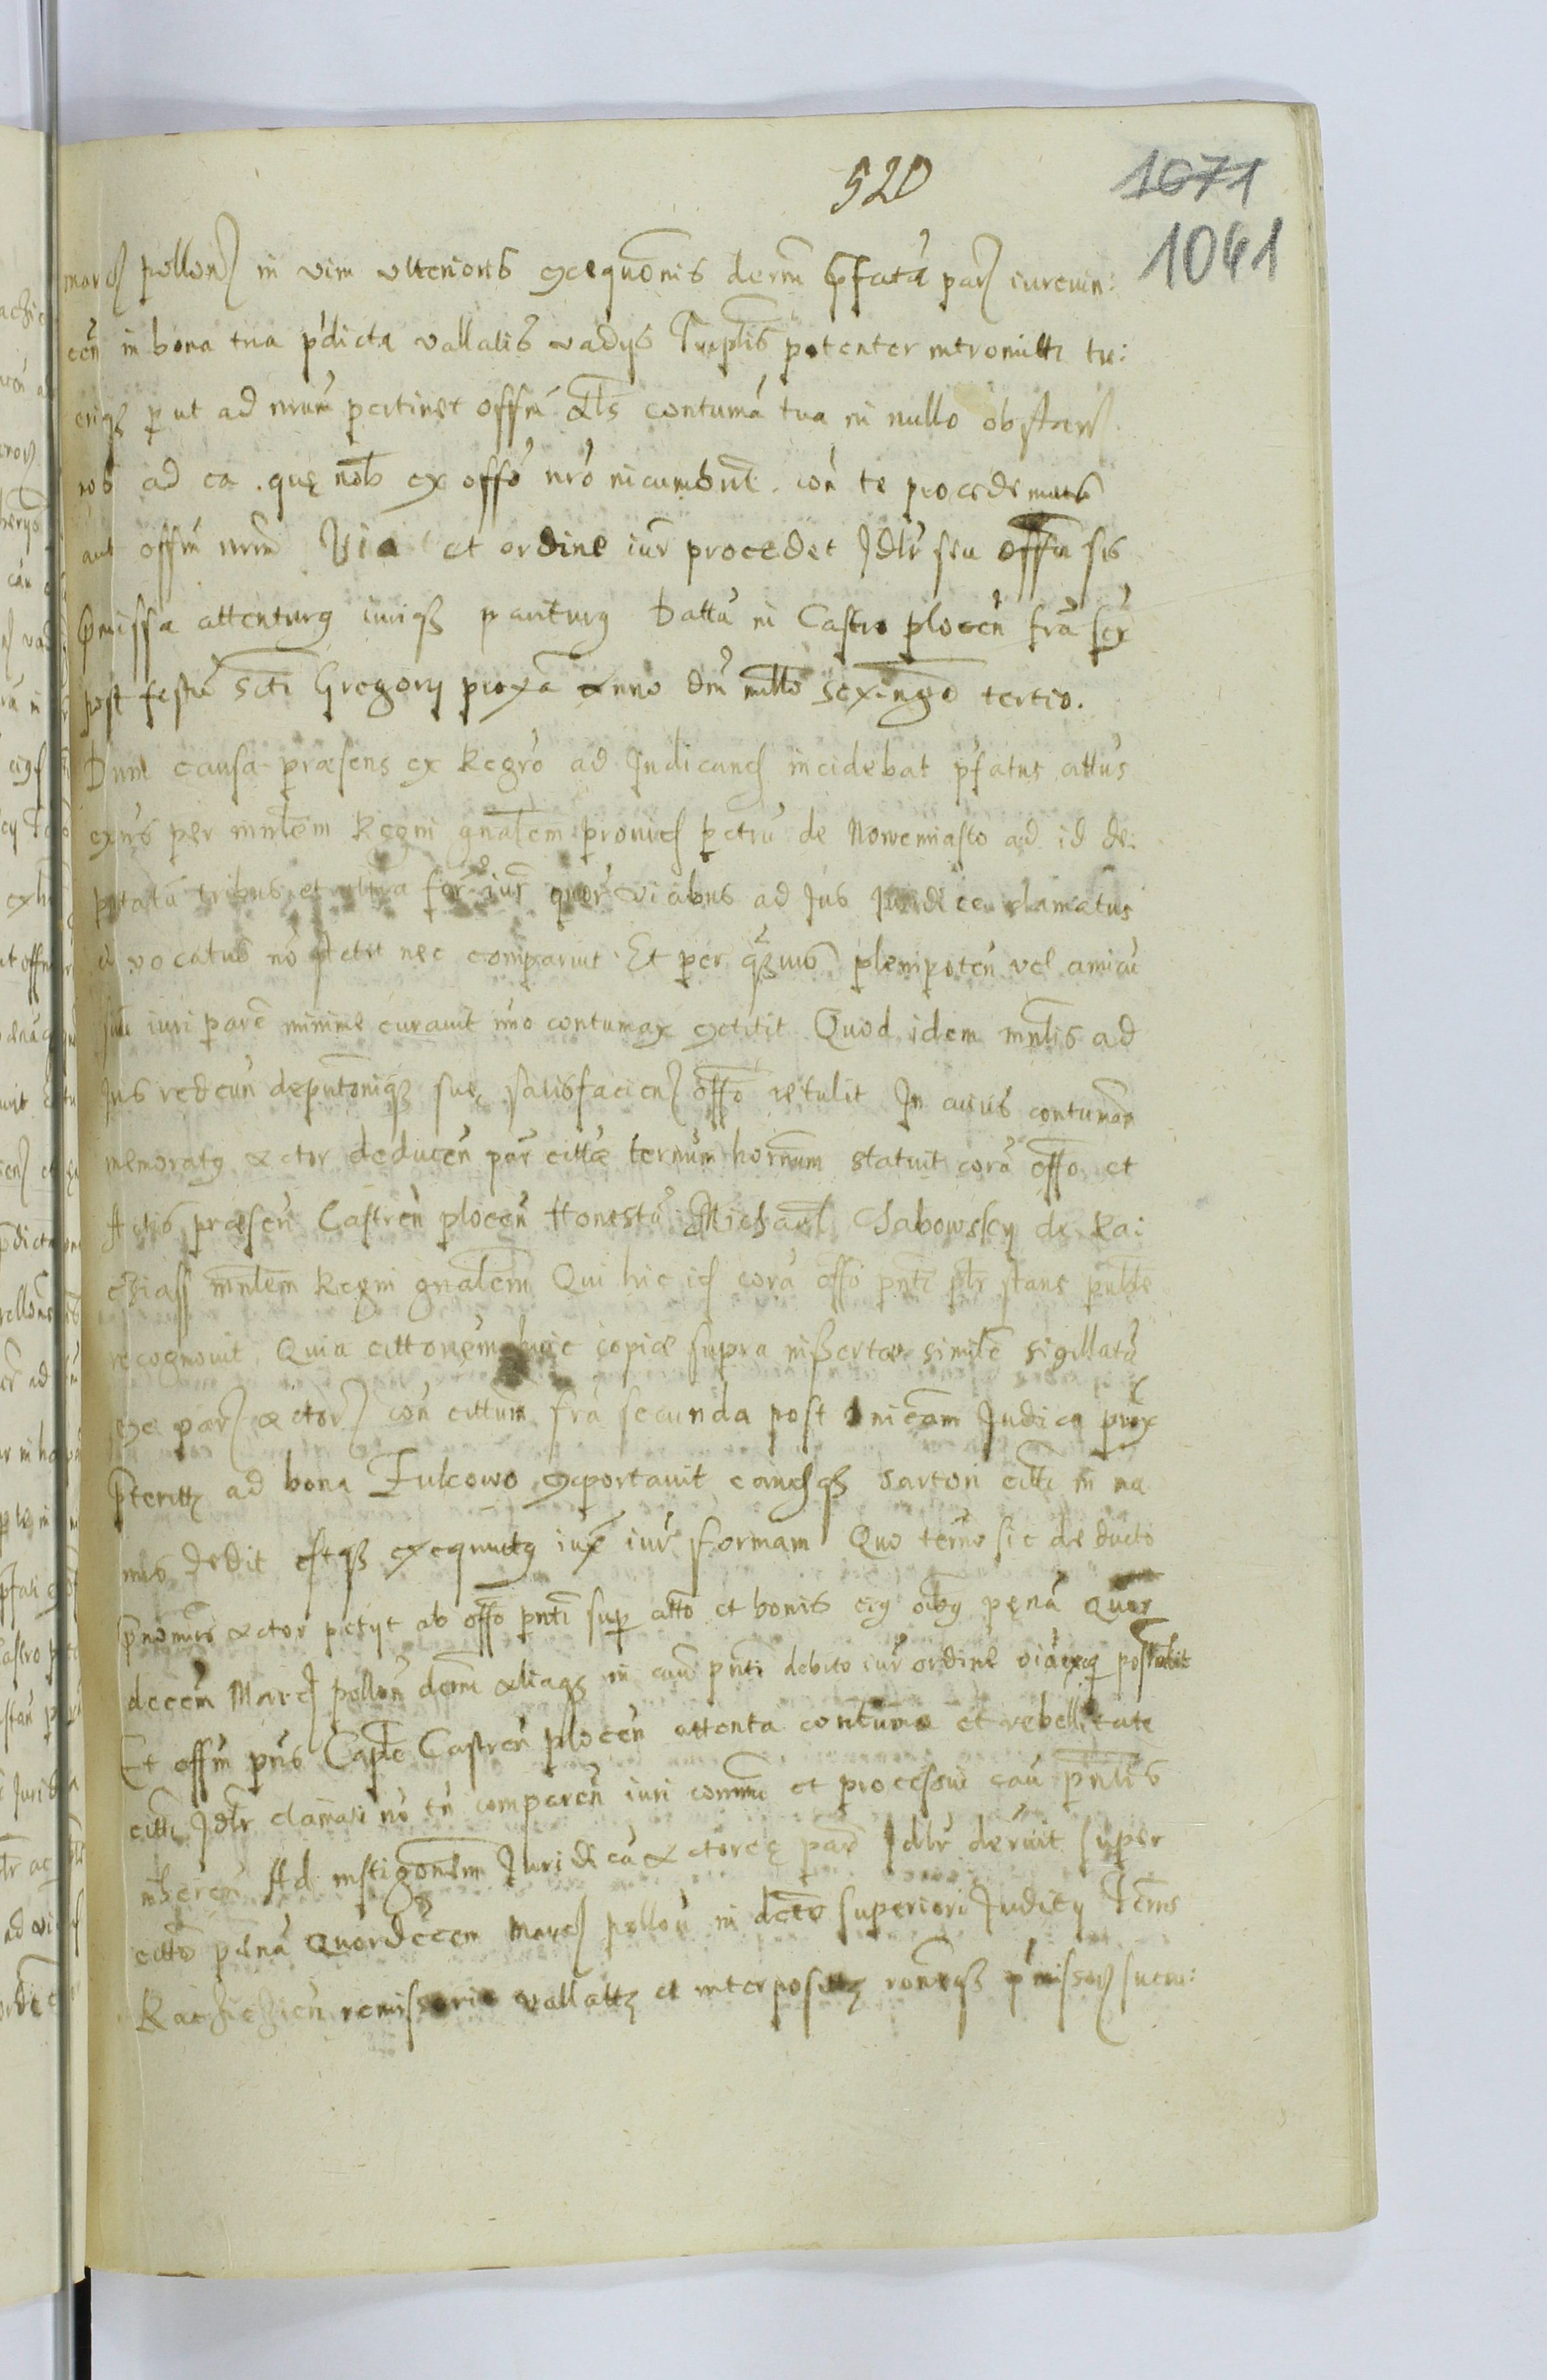 520
1071
1041
marc pollon in vim ulterioris exequōnis dernī p̄fatā par iurevin:
cen̄ in bona tua p̄dicta vallatis vadys Tuplis potenter intromitti tu:
eriqз put ad nrum pertinet offm̄ als contumā tua in nullo obstan
nob ad ea quę nob ex offō nrō incumbunt con̄ te procedemus
aut offm nrm Via et ordine iur̄ procedet Jdlr̄ seu offm sis
p̄missa attenturg iuriqз pariturg Dattū in Castro plocen̄ frā sex
post festū Scti Gregory proxā Anno Dnī millō sexingō tertio.
Dum causa præsens ex Regrō ad Judicand incidebat p̄fatus cittus
exns per mnlem Regni gnalem provid petrū de Nowemiasto ad id de:
putatū tribus et ultra for̄ iur̄ quor̄ viabus ad Jus Juridice clamatus
et vocatus nō stetit nec comparuit Et per qзuis plenipoten̄ vel amicū
suū iuri parē minime curavit imo contumax extitit Quod idem mnlis ad
Jus redeun̄ deputōniqз suę satisfacien offō retulit In cuius contumān
memoratg Actor deducen̄ par̄ cittæ termum hornum statuit corā offō et
Actis præsen̄ Castren̄ plocen̄ Honestū Michaelem Sabowsky de Ra:
cziasz mnlem Regni gnalem Qui hic id corā offō pnti ptr stans puble
recognovit Quia cittonem huic copiæ supra insertæ similē sigillatā
exe par actor con̄ cittum frā secunda post Dnicam Judica prox
pteritз ad bona Fulkowo exportavit eandqз sartori citti in ma
nus dedit estqз exequutg iux iur̄ formam Quo termo sic deducto
p̄nomins Actor petyt ab offō pnti sup cittō et bonis eig oibg pęnā quor
decem Marc pollon̄ dernī Aliaqз in cau pnti debito iur̄ ordine viaqз postulit
Et offm pns Capłe Castren̄ plocen̄ attenta contuma et rebellitate
citti Jdlr clamati nō tn̄ comparen̄ iuri commi et processui cau pntis
inheren̄ Ad instigōnem Juridicā Actoreę par̄ Jdlr dernit super
cittō pęnā Quordecem Marc pollon̄ in dctō superiori Judicy Terns
Raczieзien̄ remissorio vallattз et interposittз ronēqз p̄missor sucu: